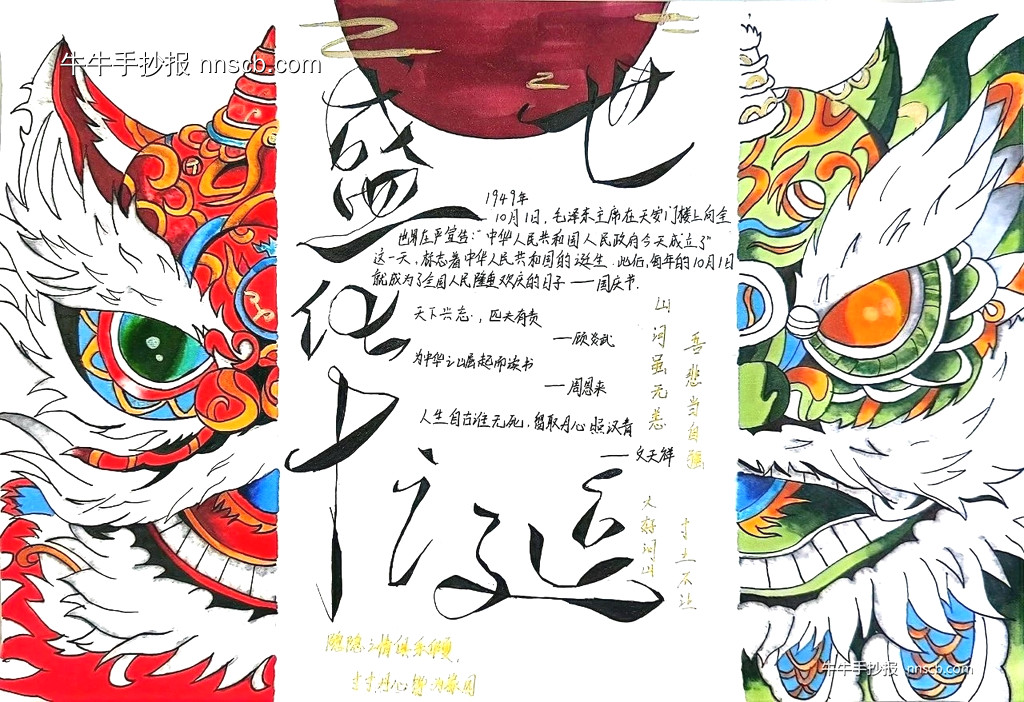 牛牛手抄报 nnscb.com
盛世
华诞
1949年
10月1日,毛泽东主席在天安门楼上向全
世界庄严宣告:"中华人民共和国人民政府今天成立了"
这一天,标志着中华人民共和国的诞生.此后,每年的10月1日
就成为了全国人民隆重欢庆的日子——国庆节.
天下兴亡,匹夫有责
——顾炎武
为中华之崛起而读书
——周恩来
人生自古谁无死,留取丹心照汉青
——文天祥
山河虽无恙
吾悲当自强
大好河山
寸土不让
隐隐之情俱系华夏,
寸寸丹心皆为家国
牛牛手抄报 nnscb.com